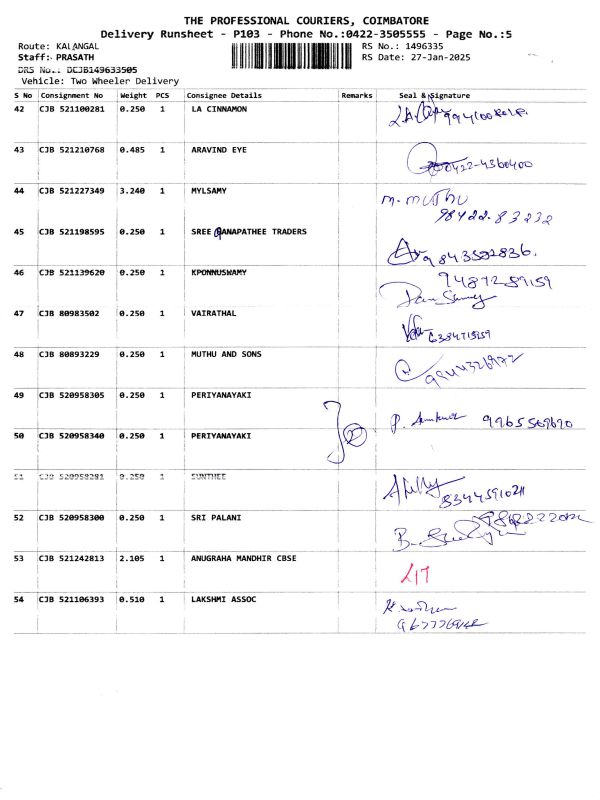 THE PROFESSIONAL COURIERS, COIMBATORE
Delivery Runsheet - P103 - Phone No.:0422-3505555 - Page No.:5
Route: KALANGAL RS No.: 1496335
Staff: PRASATH RS Date: 27-Jan-2025
DRS No.: DCJB149633505
Vehicle: Two Wheeler Delivery
S No Consignment No Weight PCS Consignee Details Remarks Seal & Signature
42 CJB 521100281 0.250 1 LA CINNAMON
43 CJB 521210768 0.485 1 ARAVIND EYE
0422-4360400
44 CJB 521227349 3.240 1 MYLSAMY
M. MUTHU
98422-83232
45 CJB 521198595 0.250 1 SREE GANAPATHEE TRADERS
9843582836.
46 CJB 521139620 0.250 1 KPONNUSWAMY
9487289159
47 CJB 80983502 0.250 1 VAIRATHAL
48 CJB 80893229 0.250 1 MUTHU AND SONS
49 CJB 520958305 0.250 1 PERIYANAYAKI
50 CJB 520958340 0.250 1 PERIYANAYAKI
51 CJB 520958281 0.250 1 SUNTHEE
52 CJB 520958300 0.250 1 SRI PALANI
53 CJB 521242813 2.105 1 ANUGRAHA MANDHIR CBSE
54 CJB 521106393 0.510 1 LAKSHMI ASSOC